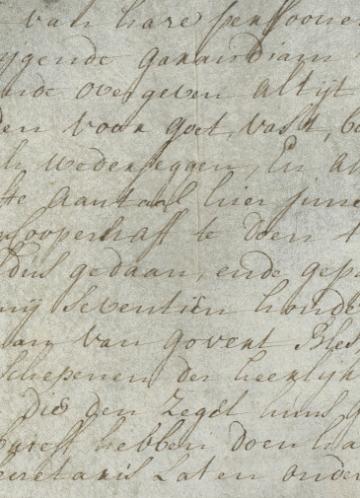 van hare persoone
ygende Garandiam
nde overgeven altijt
den voor goet, vast, be
wedersegen, En a
te aantaal hier jnne
looperhaff te doen
dus gedaan, ende gep
mij Seventiën honde
aan van Govert Bles
Schepenen der heerlyk
die den Zegel huns
hebben doen ha
ecretaris Laten onde